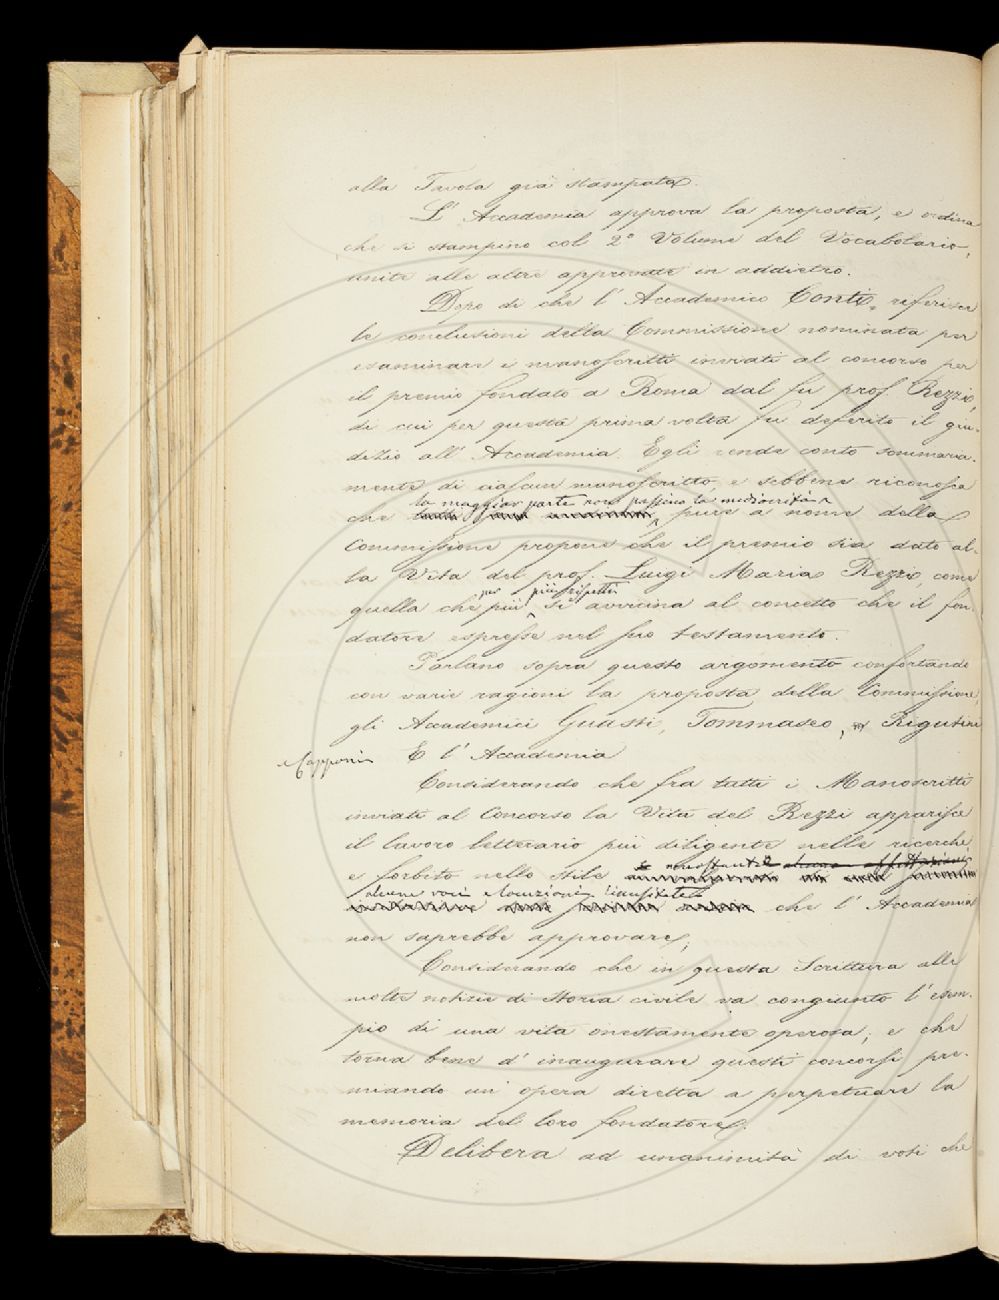 alla Tavola già stampata.
L' Accademia approva la proposta, e ordina
che si stampino col 2º Volume del Vocabolario,
unite alle altre approvate in addietro.
Dopo di che l' Accademico Conti, riferisce
le conclusioni della Commissione nominata per
esaminare i manoscritti inviati al concorso per
il premio fondato a Roma dal fu prof. Rezzi,
di cui per questa prima volta fu deferito il giu-
dizio all' Accademia. Egli rende conto sommaria-
mente di ciascun manoscritto, e sebbene riconosca
la maggior parte non passino la mediocrità
che pure a nome della
Commissione propone che il premio sia dato al-
la Vita del prof. Luigi Maria Rezzi, come
per più rispetti
quella che più si avvicina al concetto che il fon-
datore espresse nel suo testamento.
Parlano sopra questo argomento confortando
con varie ragioni la proposta della Commissione,
gli Accademici Guasti, Tommaseo, Rigutini
Capponi E l' Accademia
Considerando che fra tutti i Manoscritti
inviati al Concorso la Vita del Rezzi apparisce
il lavoro letterario più diligente nelle ricerche
e nonostante alcuna affettazione
e forbito nello stile
alcune voci e locuzioni inusitate
che l' Accademia
non saprebbe approvare;
Considerando che in questa Scrittura alle
molte notizie di Storia civile va congiunto l' esem-
pio di una vita onestamente operosa; e che
torna bene d' inaugurare questi concorsi pre-
miando un' opera diretta a perpetuare la
memoria del loro fondatore.
Delibera ad unanimità di voti che